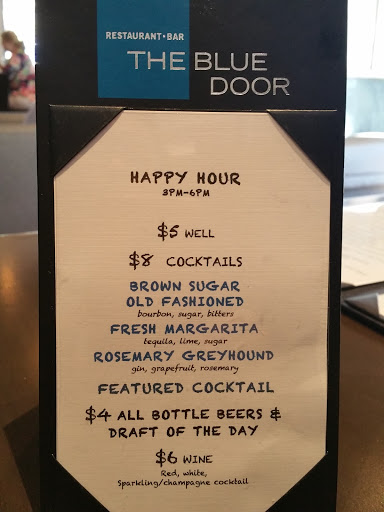 RESTAURANT•BAR
THE BLUE
DOOR
HAPPY HOUR
3PM-6PM
$5 WELL
$8 COCKTAILS
BROWN SUGAR
OLD FASHIONED
bourbon, sugar, bitters
FRESH MARGARITA
tequila, lime, sugar
ROSEMARY GREYHOUND
gin, grapefruit, rosemary
FEATURED COCKTAIL
$4 ALL BOTTLE BEERS &
DRAFT OF THE DAY
$6 WINE
Red, white,
Sparkling/champagne cocktail